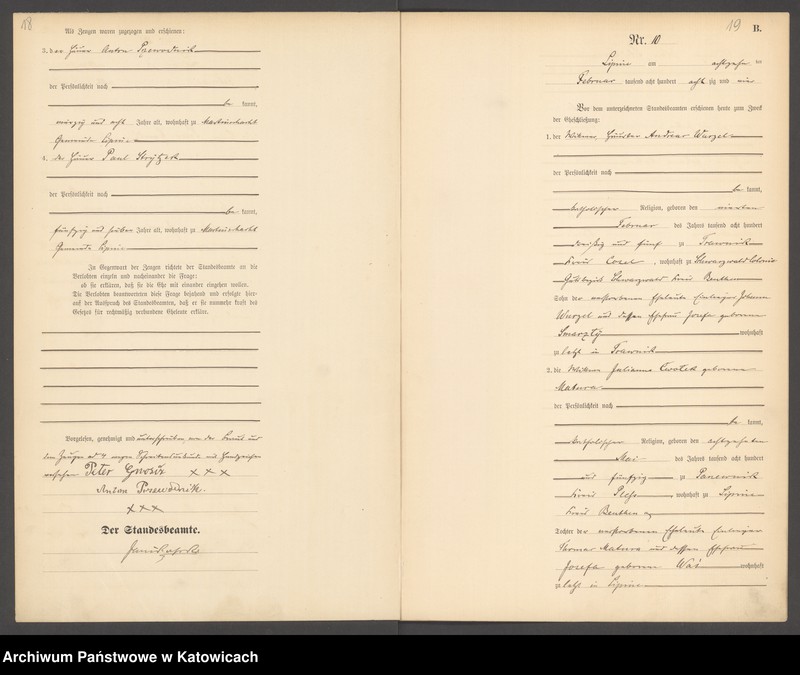 18
Als Zeugen waren zugezogen und erschienen:
3. der Häuer Anton
der Persönlichkeit nach
be kannt,
vierzig und acht Jahre alt, wohnhaft zu
Gemeinde Lipine
4. der Häuer Paul
der Persönlichkeit nach
be kannt,
fünfzig und sieben Jahre alt, wohnhaft zu
Gemeinde Lipine
In Gegenwart der Zeugen richtete der Standesbeamte an die
Verlobten einzeln und nacheinander die Frage:
ob sie erklären, daß sie die Ehe mit einander eingehen wollen.
Die Verlobten beantworteten diese Frage bejahend und erfolgte hier-
auf der Ausspruch des Standesbeamten, daß er sie nunmehr kraft des
Gesetzes für rechtmäßig verbundene Eheleute erkläre.
Vorgelesen, genehmigt und unterschrieben, von der Braut und
dem Zeugen ad 4 wegen Schreibensunkunde mit Handzeichen
versehen Peter xxx
Anton
xxx
Der Standesbeamte.
19 B.
Nr. 10
Lipine am achtzehn ten
Februar tausend acht hundert acht zig und
Vor dem unterzeichneten Standesbeamten erschienen heute zum Zweck
der Eheschließung:
1. der Wittwer, Häusler Andreas Wurzel
der Persönlichkeit nach
be kannt,
katholischer Religion, geboren den vierten
Februar des Jahres tausend acht hundert
dreißig und fünf zu Trawnik
Kreis Cosel, wohnhaft zu Schwarzwald Colonie
Gutsbezirk Schwarzwald Kreis Beuthen
Sohn der verstorbenen Eheleute Einlieger Johann
Wurzel und dessen Ehefrau Josefa geborene
Smarzly wohnhaft
zuletzt in Trawnik
2. die Wittwe Julianna geborene
Matura
der Persönlichkeit nach
be kannt,
katholischer Religion, geboren den achtzehnten
Mai des Jahres tausend acht hundert
und fünfzig zu Panewnik
Kreis Pless, wohnhaft zu Lipine
Kreis Beuthen
Tochter der verstorbenen Eheleute Einlieger
Thomas Matura und dessen Ehefrau
Josefa geborene wohnhaft
zuletzt in Lipine
Archiwum Państwowe w Katowicach